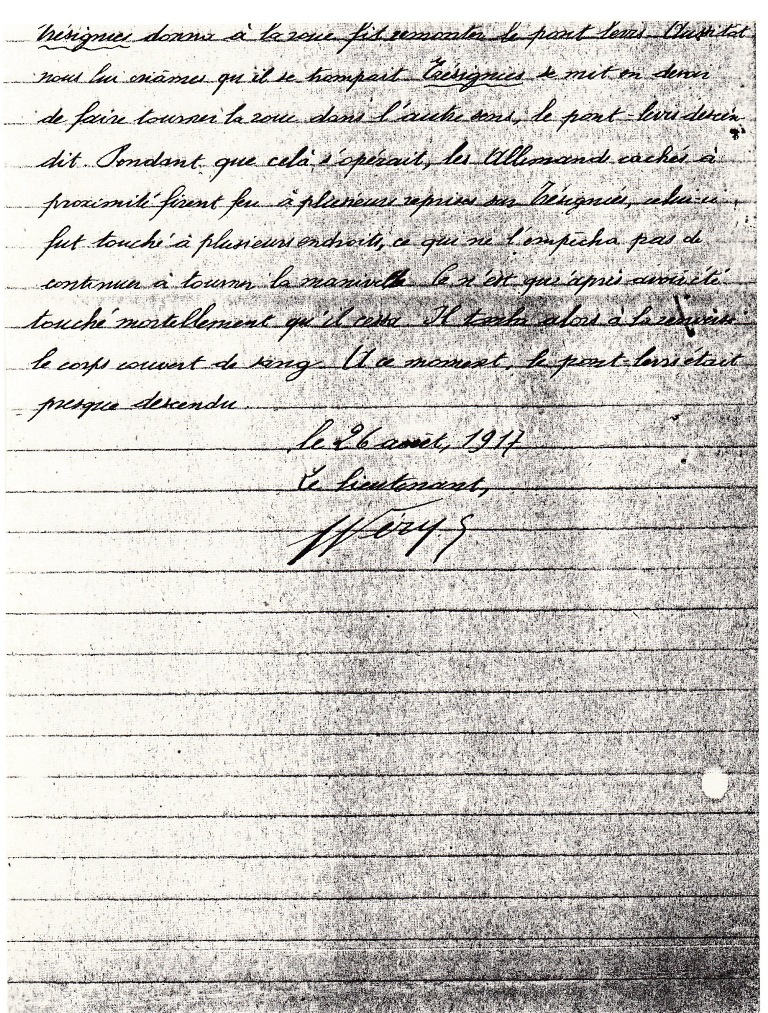 Trésignies donna à la roue fit remonter le pont levis Aussitôt
nous lui criâmes qu'il se trompait Trésignies se mit en devoir
de faire tourner la roue dans l'autre sens, le pont-levis descen
dit. Pendant que celà s'opérait, les Allemands cachés à
proximité firent feu à plusieurs reprises sur Trésignies, celui-ci
fut touché à plusieurs endroits, ce qui ne l'empêcha pas de
continuer à tourner la manivelle Ce n'est qu'après avoir été
touché mortellement qu'il cessa Il tomba alors à la renverse
le corps couvert de sang. A ce moment, le pont-levis était
presque descendu.
le 26 août, 1917
Le lieutenant,
Wérys